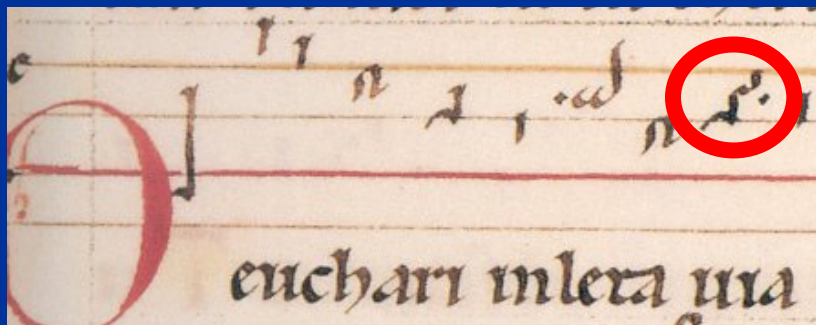 c
O euchari in leta uia